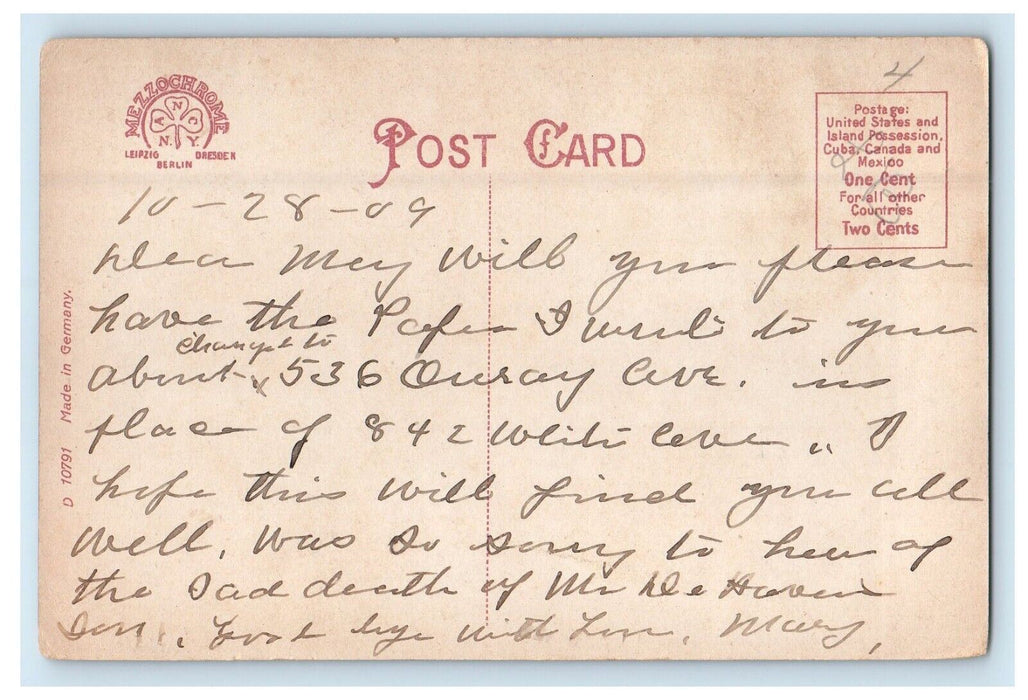 MEZZOCHROME
A N C
N. Y.
LEIPZIG DRESDEN
BERLIN
POST CARD
4
Postage:
United States and
Island Possession,
Cuba, Canada and
Mexico
One Cent
For all other
Countries
Two Cents
D 10791 Made in Germany.
10-28-09
Dear May Will you please
have the Paper I wrote to you
changed to
about 536 Ouray Ave. in
place of 842 White Ave ,, I
hope this will find you all
well, was so sorry to hear of
the sad death of Mr De Haven
Son, Good bye with Love, Mary,